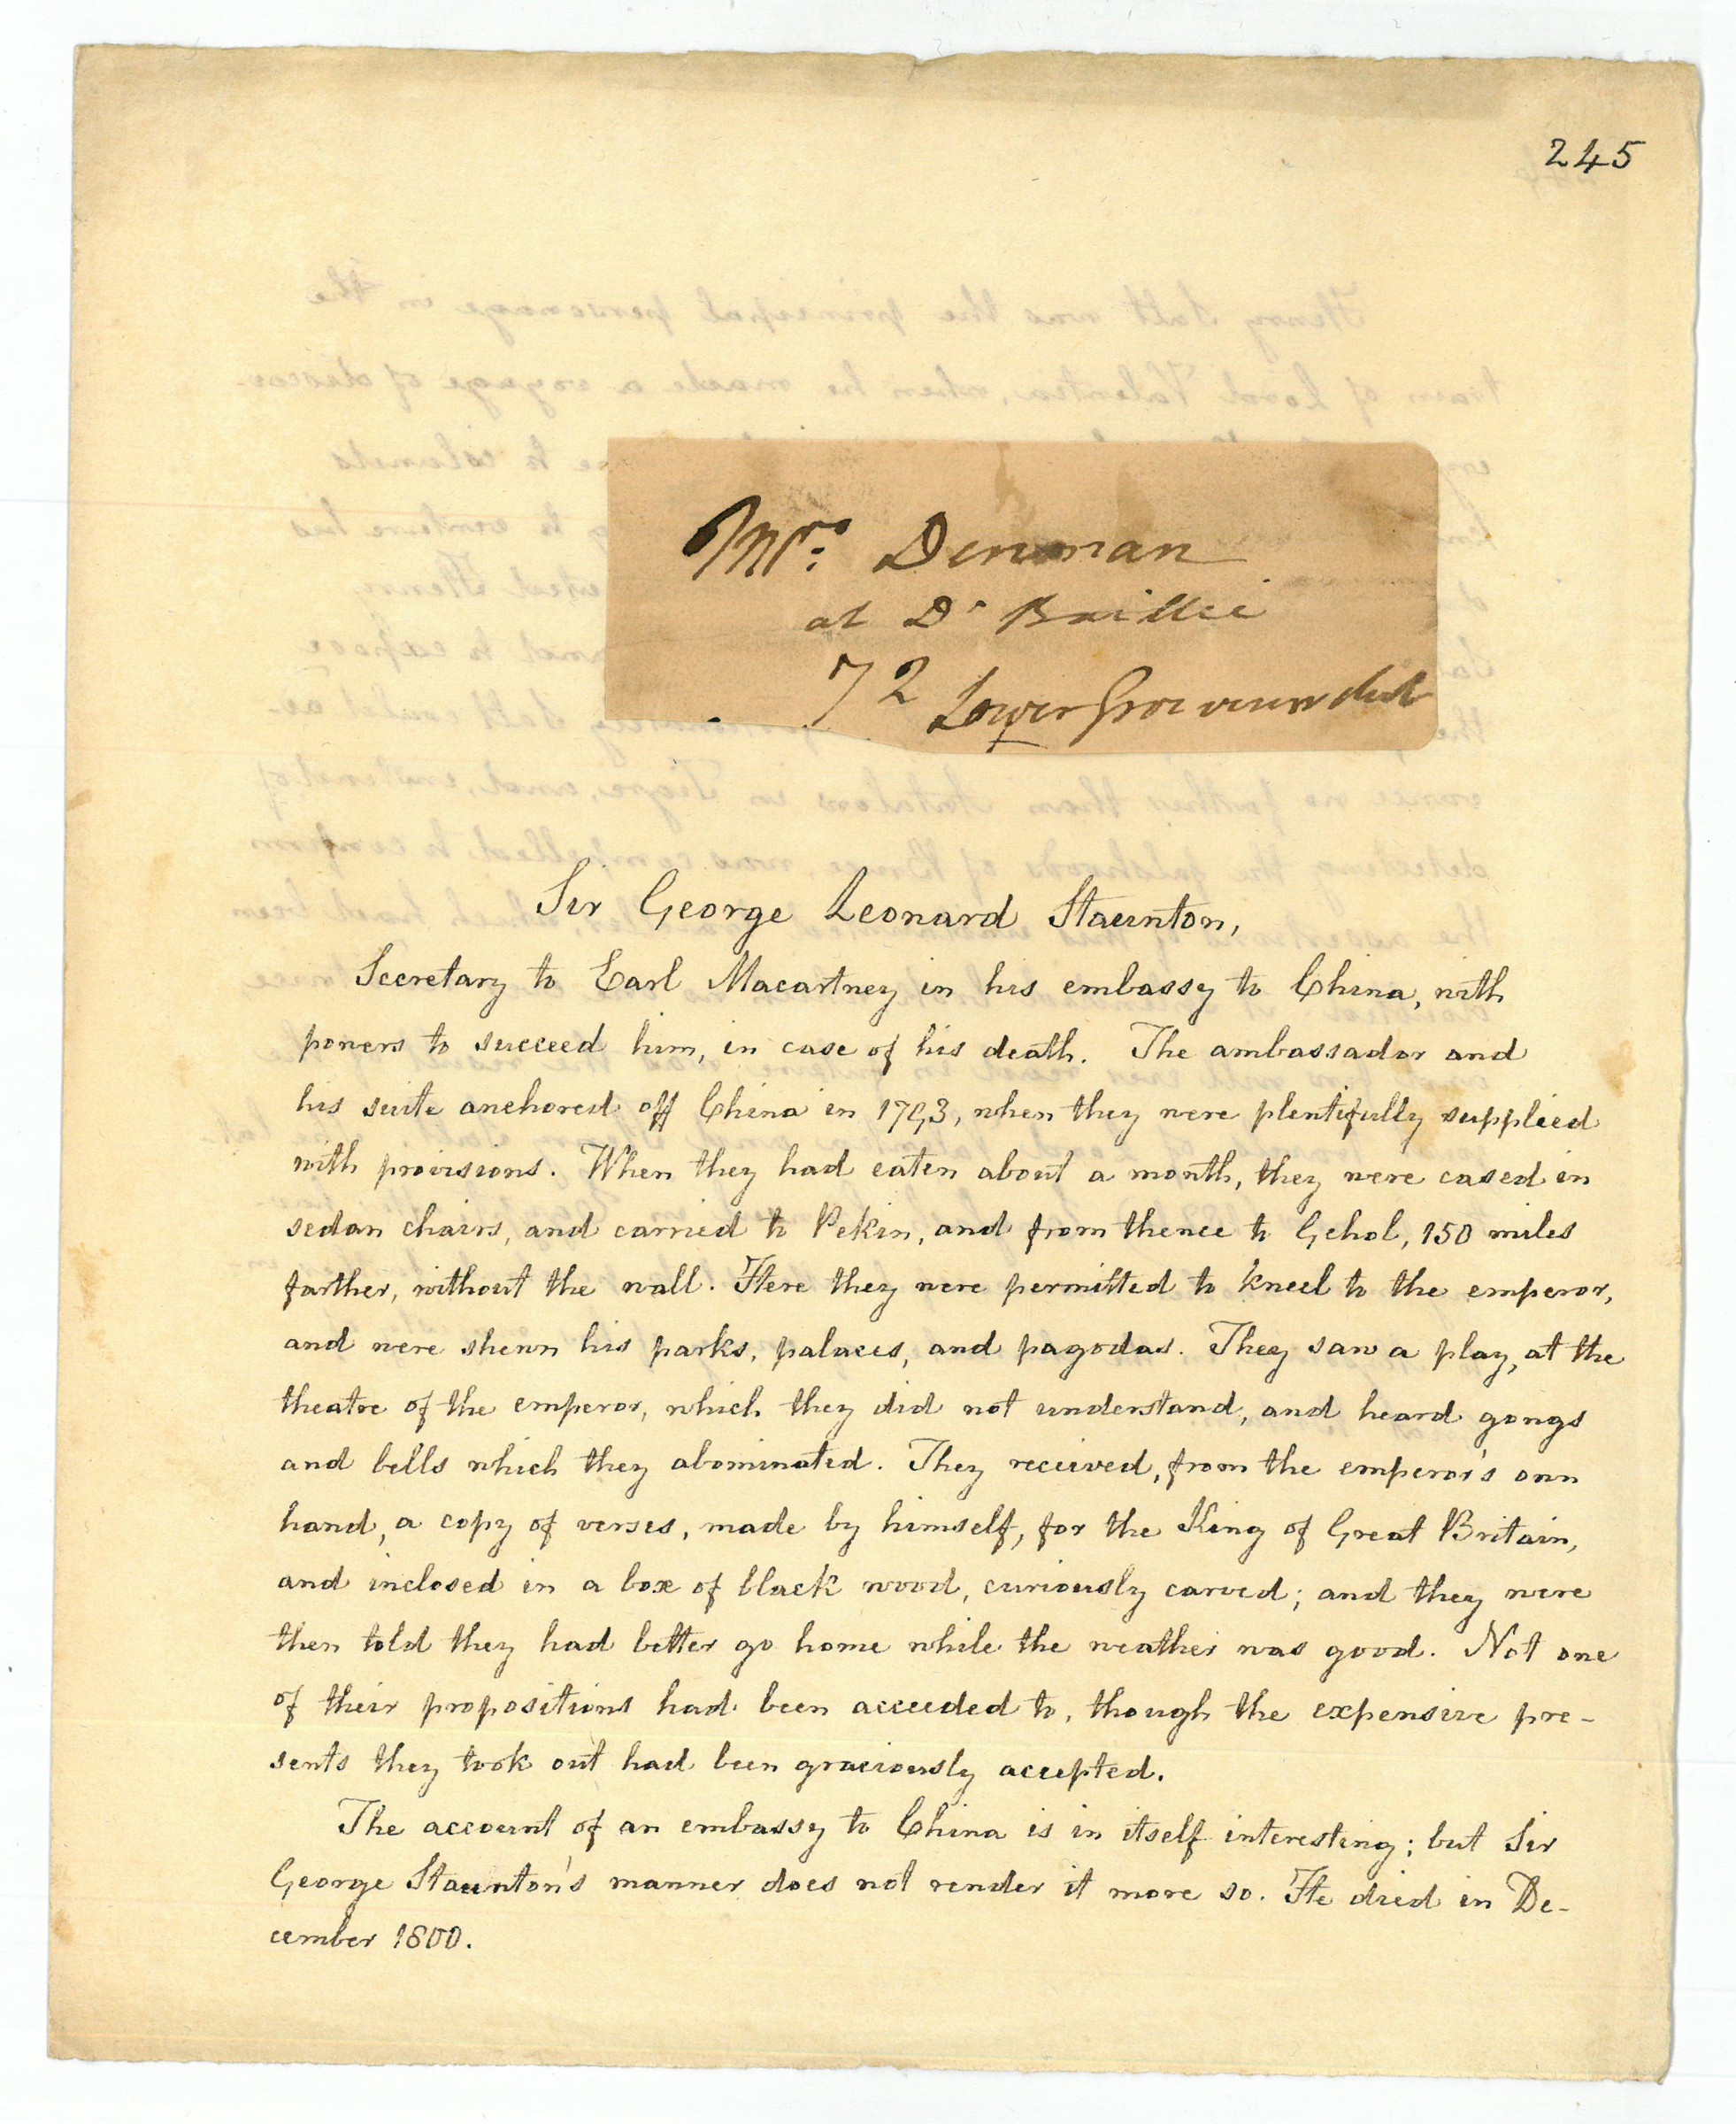 245
Mrs. Denman
at Dr Baillie
72 Lower Grosvenor
Sir George Leonard Staunton,
Secretary to Earl Macartney in his embassy to China, with
powers to succeed him, in case of his death. The ambassador and
his suite anchored off China in 1793, when they were plentifully supplied
with provisions. When they had eaten about a month, they were cased in
sedan chairs, and carried to Pekin, and from thence to Gehol, 150 miles
farther, without the wall. Here they were permitted to kneel to the emperor,
and were shewn his parks, palaces, and pagodas. They saw a play, at the
theatre of the emperor, which they did not understand, and heard gongs
and bells which they abominated. They received, from the emperor's own
hand, a copy of verses, made by himself, for the King of Great Britain,
and inclosed in a box of black wood, curiously carved; and they were
then told they had better go home while the weather was good. Not one
of their propositions had been acceeded to, though the expensive pre-
sents they took out had been graciously accepted.
The account of an embassy to China is in itself interesting; but Sir
George Staunton's manner does not render it more so. He died in De-
cember 1800.